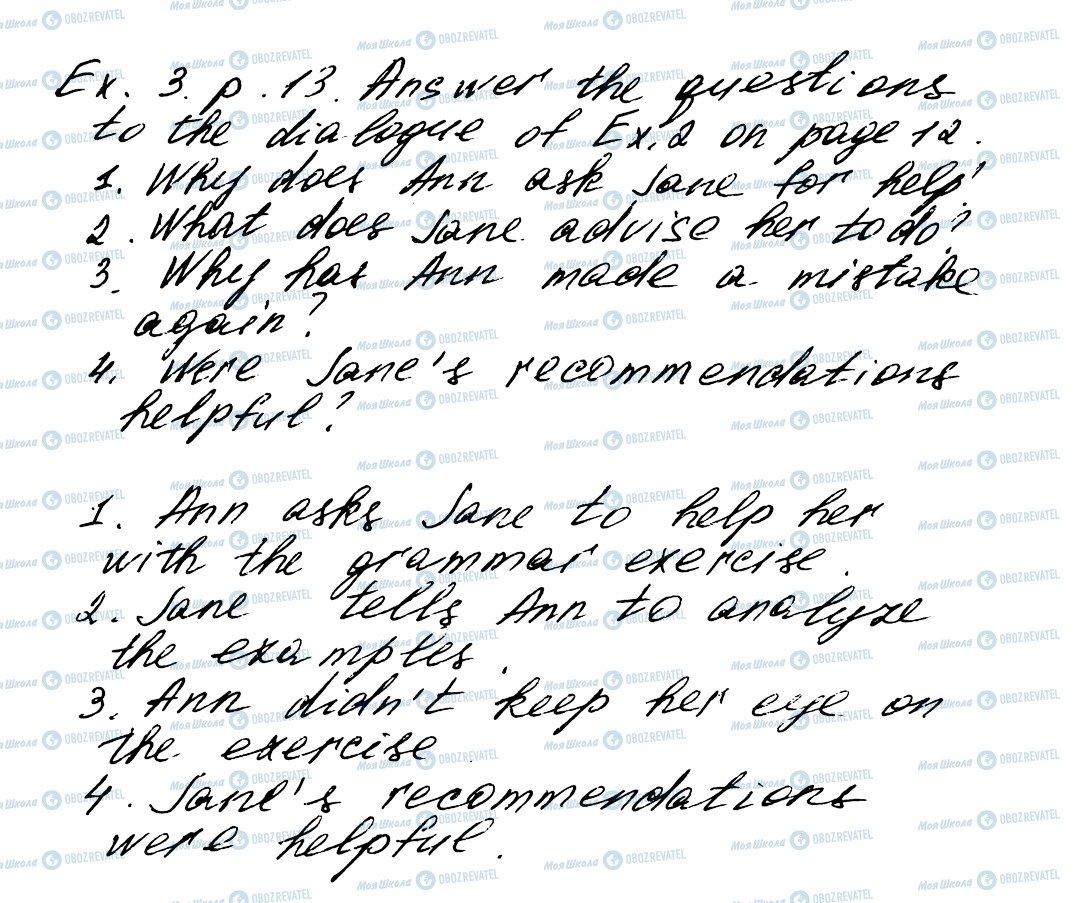 Ex. 3. p. 13. Answer the questions
to the dialogue of Ex. 2 on page 12.
1. Why does Ann ask Jane for help?
2. What does Jane advise her to do?
3. Why has Ann made a mistake
again?
4. Were Jane's recommendations
helpful?
1. Ann asks Jane to help her
with the grammar exercise.
2. Jane tells Ann to analyze
the examples.
3. Ann didn't keep her eye on
the exercise
4. Jane's recommendations
were helpful.